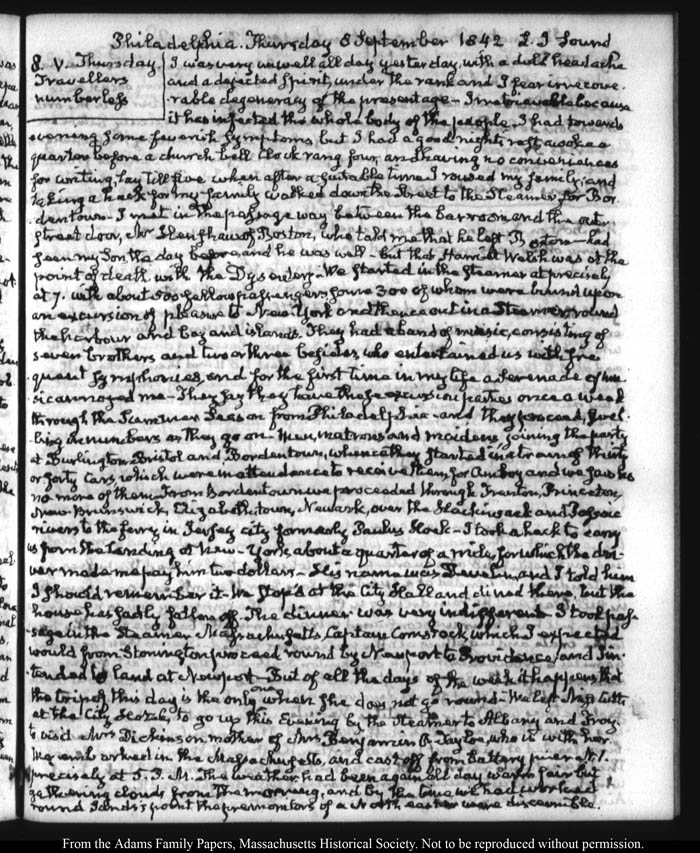 Philadelphia. Thursday 8 September 1842 L. I Sound
8. V. Thursday.
Travellers
numberless
I was very unwell all day yesterday, with a dull headache
and a dejected Spirit, under the rank and I fear irrecove-
rable degeneracy of the present age — Irretrievable because
it has infected the whole body of the people. I had towards
evening some feverish symptoms, but I had a good night's rest, awoke a
quarter before a church bell Clock rang four, and having no conveniences
for writing, lay till five when after a suitable time I roused my family, and
taking a hack for my family walked down the street to the Steamer, for Bor-
dentown. I met in the passage way between the bar room and the outer
street door, Mr of Boston, who told me that he left Boston — had
seen my Son the day before, and he was well — but that Harriet Welsh was at the
point of death with the Dysentery. We started in the steamer at precisely
at 7. with about 500 fellow passengers, some 300 of whom were bound upon
an excursion of pleasure to New York and thence out in a Steamer, round
the harbour and bay and islands. They had a band of music, consisting of
seven brothers and two or three besides, who entertained us with fre-
quent symphonies, and for the first time in my life a Serenade of mu-
sic annoyed me — They say they have these excursion parties once a week
through the Summer Season from Philadelphia — and they proceed, swel-
ling in numbers as they go on — men, matrons and maidens, joining the party
at Burlington, Bristol and Bordentown, whence they started in a train of thirty
or forty Cars, which were in attendance to receive them, for Amboy and we saw
no more of them. From Bordentown we proceeded through Trenton, Princeton,
New-Brunswick, Elizabethtown, Newark, over the Hackinsack and Passaic
rivers to the ferry, in Jersey city formerly Paulus Hook — I took a hack to carry
us from the landing at New-York, about a quarter of a mile, for which the dri-
ver made me pay him two dollars — His name was Develin, and I told him
I should remember it. We stop'd at the City Hall and dined there, but the
house has sadly fallen off. The dinner was very indifferent. I took pas-
sage in the Steamer Massachusetts, Captain Comstock, which I expected
would from Stonington proceed round by Newport to Providence, and I in-
tended to land at Newport — But of all the days of the week it happens that
the trip of this day is the only one when she does not go round — We left Miss Cutts
at the City Hotel, to go up this Evening by the Steamer to Albany and Troy,
to visit Mrs Dickinson mother of Mrs Benjamin O. Tayloe, who is with her.
We embarked in the Massachusetts, and cast off from Battery pier N. 1.
precisely at 5. P. M. The weather had been again all day warm, fair but
gathering clouds from the morning, and by the time we had
round Sands's point the premonitors of a North easter were discernible.
From the Adams Family Papers, Massachusetts Historical Society. Not to be reproduced without permission.